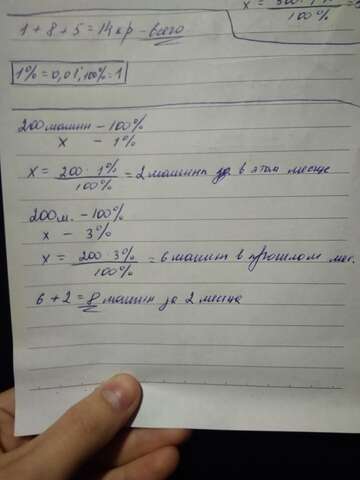 x =
100%
1 + 8 + 5 = 14 кр - всего
1% = 0,01; 100% = 1
200 машин - 100%
x - 1%
x = 200 · 1% / 100% = 2 машины в этом месяце
200 м. - 100%
x - 3%
x = 200 · 3% / 100% = 6 машин в прошлом мес.
6 + 2 = 8 машин за 2 месяца